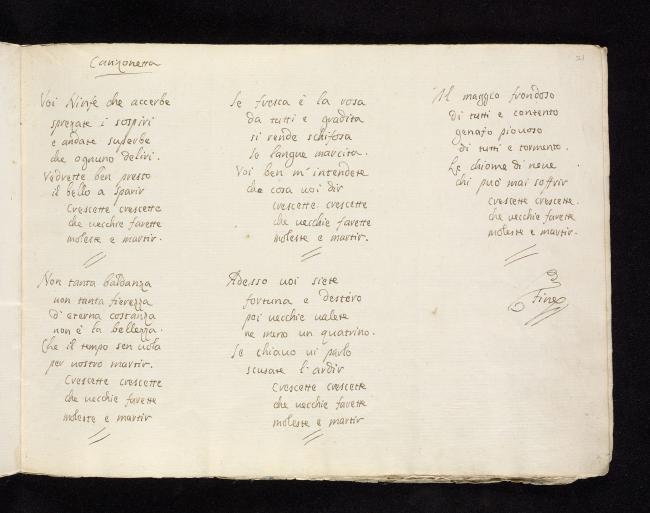 21
Canzonetta
Voi Ninfe che accerbe
sprezate i sospiri
e andate superbe
che ognuno deliri.
Vedrette ben presto
il bello a sparir
Crescette crescette
che vecchie farette
moleste e martir.
Non tanta baldanza
non tanta fierezza
d'eterna costanza
non è la bellezza.
Che il tempo sen vola
per nostro martir.
Crescette crescette
che vecchie farette
moleste e martir
Se fresca è la rosa
da tutti e gradita
si rende schifosa
se langue marcita.
Voi ben m'intendete
che cosa voi dir
Crescette crescette
che vecchie farette
moleste e martir.
Adesso voi siete
fortuna e destero
poi vecchie valete
ne meno un quatrino.
Se chiavo vi parlo
scusate l'ardir
Crescette crescette
che vecchie farette
moleste e martir
Il maggio frondoso
di tutti e contento
genaro piovoso
di tutti e tormento.
Le chiome di neve
chi può mai soffrir
Crescette crescette.
che vecchie farette
moleste e martir.
Fine